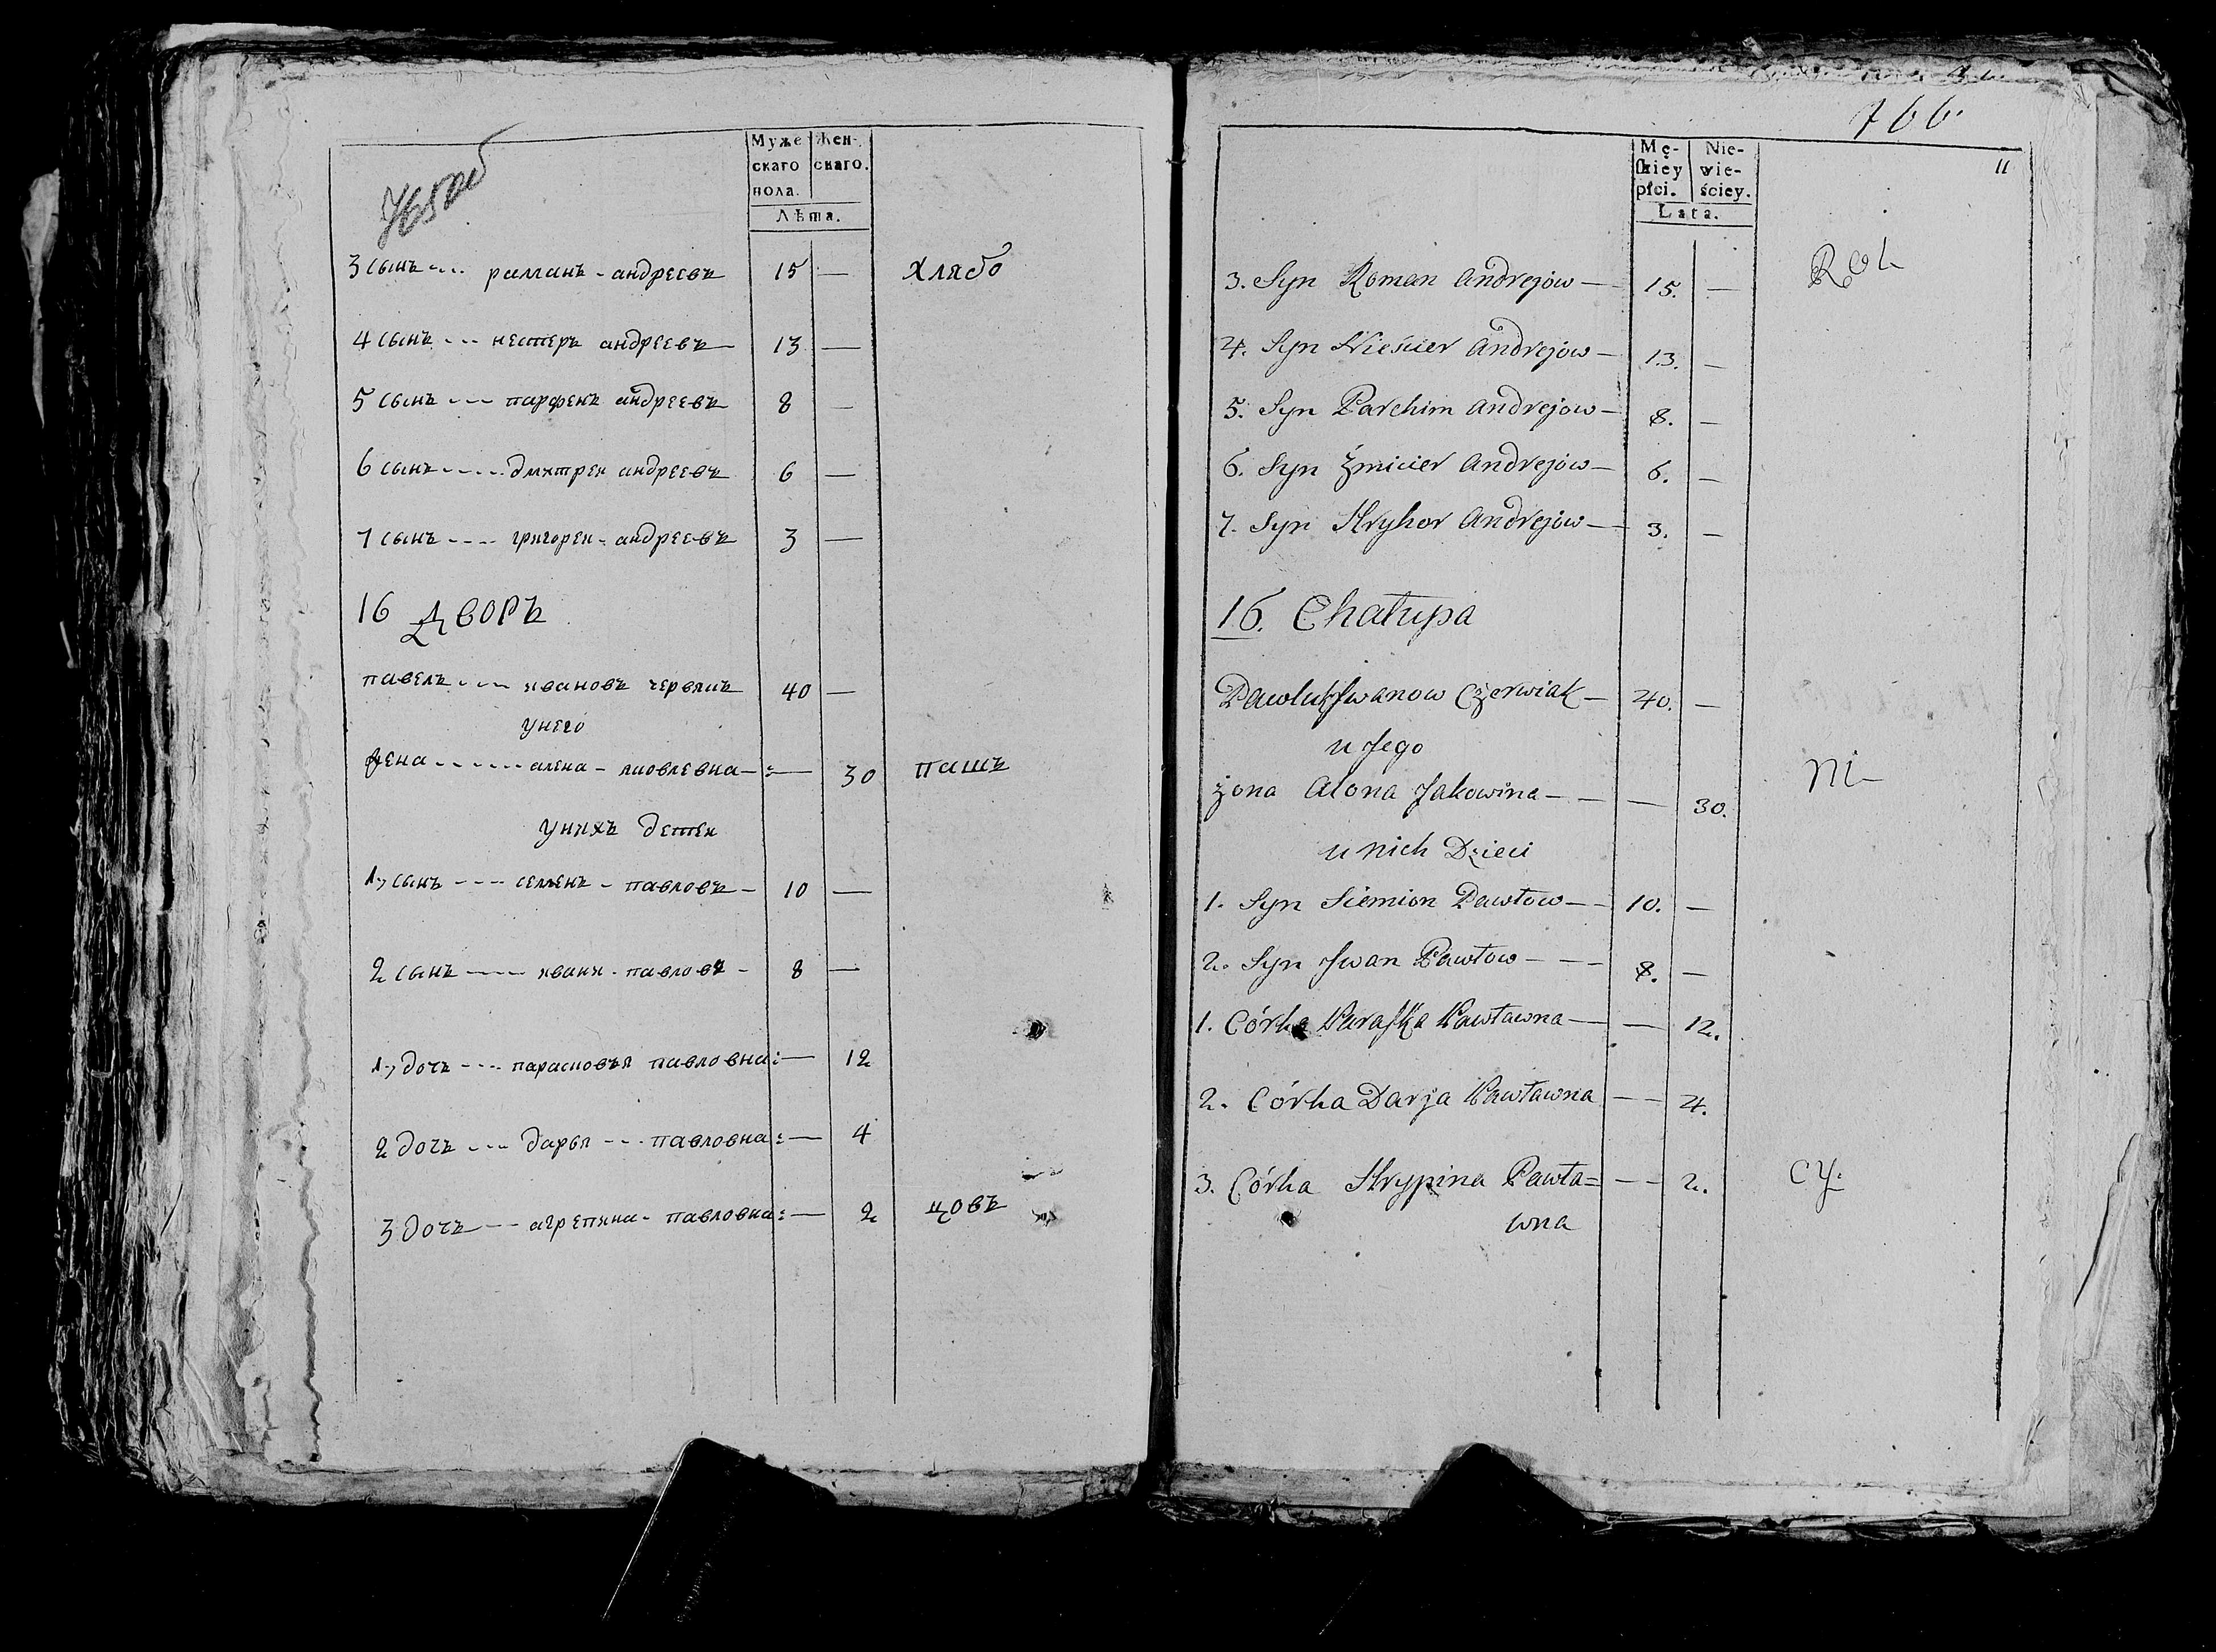 765 об
Муже скаго пола. | Жен- скаго.
Лѣта.
3 сынъ --- раманъ - андреевъ 15 — хлябо
4 сынъ --- нестеръ андреевъ — 13 —
5 сынъ --- парфенъ андреевъ 8 —
6 сынъ ---- дмитреи андреевъ 6 —
7 сынъ ---- григореи - андреевъ 3 —
16 дворъ
павелъ ---- ивановъ червякъ 40 —
унего
жена ------ алена - яковлевна — : — 30 пашъ
унихъ детеи
1, сынъ ---- семенъ - павловъ - 10 —
2 сынъ ---- иванъ - павловъ - 8 —
1, дочь ---- парасковья павловна : — 12
2 дочь --- дарья --- павловна : — 4
3 дочь --- агрепина - павловна : — 2 цовъ
766.
Mę- skiey płci. | Nie- wie- ściey.
11
Lata.
3. Syn Roman Andrejow — 15. — Rol
4. Syn Nieścier Andrejow — 13. —
5. Syn Parchim Andrejow — 8. —
6. Syn Zmicier Andrejow — 6. —
7. Syn Hryhor Andrejow — 3. —
16. Chałupa
Pawluk Jwanow Czerwiak — 40. —
u Jego
żona Alona Jakowina — — — 30. ni-
u nich Dzieci
1. Syn Siemion Pawłow — — 10. —
2. Syn Jwan Pawłow — — — 8. —
1. Córka Paraska Pawławna — — 12.
2. Córka Darja Pawławna — — 4.
3. Córka Hrypina Pawła= — — 2. cy.
wna